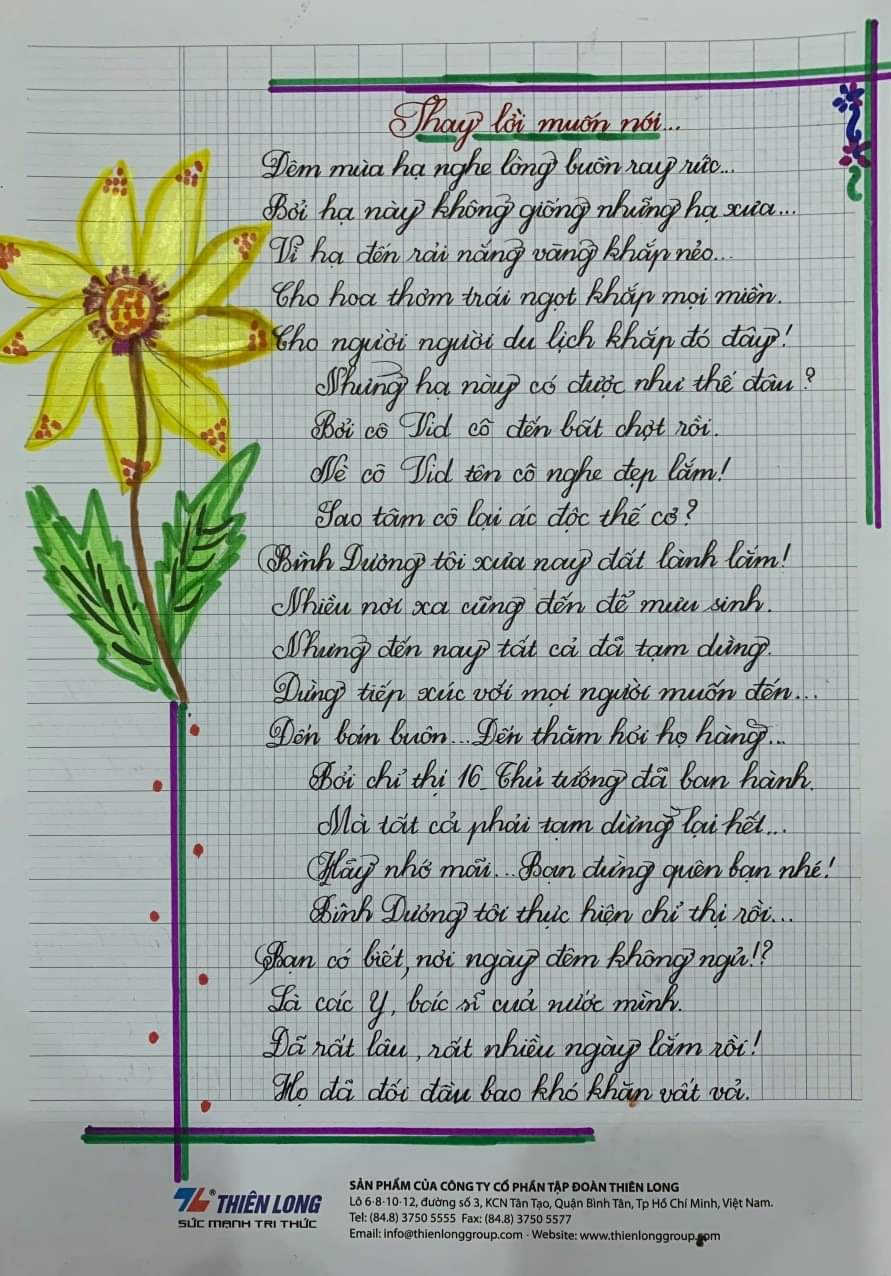 Thay lời muốn nói...
Đêm mùa hạ nghe lòng buồn ray rức...
Bởi hạ này không giống những hạ xưa...
Vì hạ đến rải nắng vàng khắp nẻo...
Cho hoa thơm trái ngọt khắp mọi miền.
Cho người người du lịch khắp đó đây!
Nhưng hạ này có được như thế đâu?
Bởi cô Vid cô đến bất chợt rồi.
Nè cô Vid tên cô nghe đẹp lắm!
Sao tâm cô lại ác độc thế cơ?
Bình Dương tôi xưa nay đất lành lắm!
Nhiều nơi xa cũng đến để mưu sinh.
Nhưng đến nay tất cả đã tạm dừng.
Dừng tiếp xúc với mọi người muốn đến...
Đến bán buôn... Đến thăm hỏi họ hàng...
Bởi chỉ thị 16 Thủ tướng đã ban hành.
Mà tất cả phải tạm dừng lại hết...
Hãy nhớ mãi... Bạn đừng quên bạn nhé!
Bình Dương tôi thực hiện chỉ thị rồi...
Bạn có biết, nơi ngày đêm không ngủ!?
Là các y, bác sĩ của nước mình.
Đã rất lâu, rất nhiều ngày lắm rồi!
Họ đã đối đầu bao khó khăn vất vả.
THIÊN LONG®
SỨC MẠNH TRI THỨC
SẢN PHẨM CỦA CÔNG TY CỔ PHẦN TẬP ĐOÀN THIÊN LONG
Lô 6-8-10-12, đường số 3, KCN Tân Tạo, Quận Bình Tân, Tp Hồ Chí Minh, Việt Nam.
Tel: (84.8) 3750 5555 Fax: (84.8) 3750 5577
Email: info@thienlonggroup.com - Website: www.thienlonggroup.com